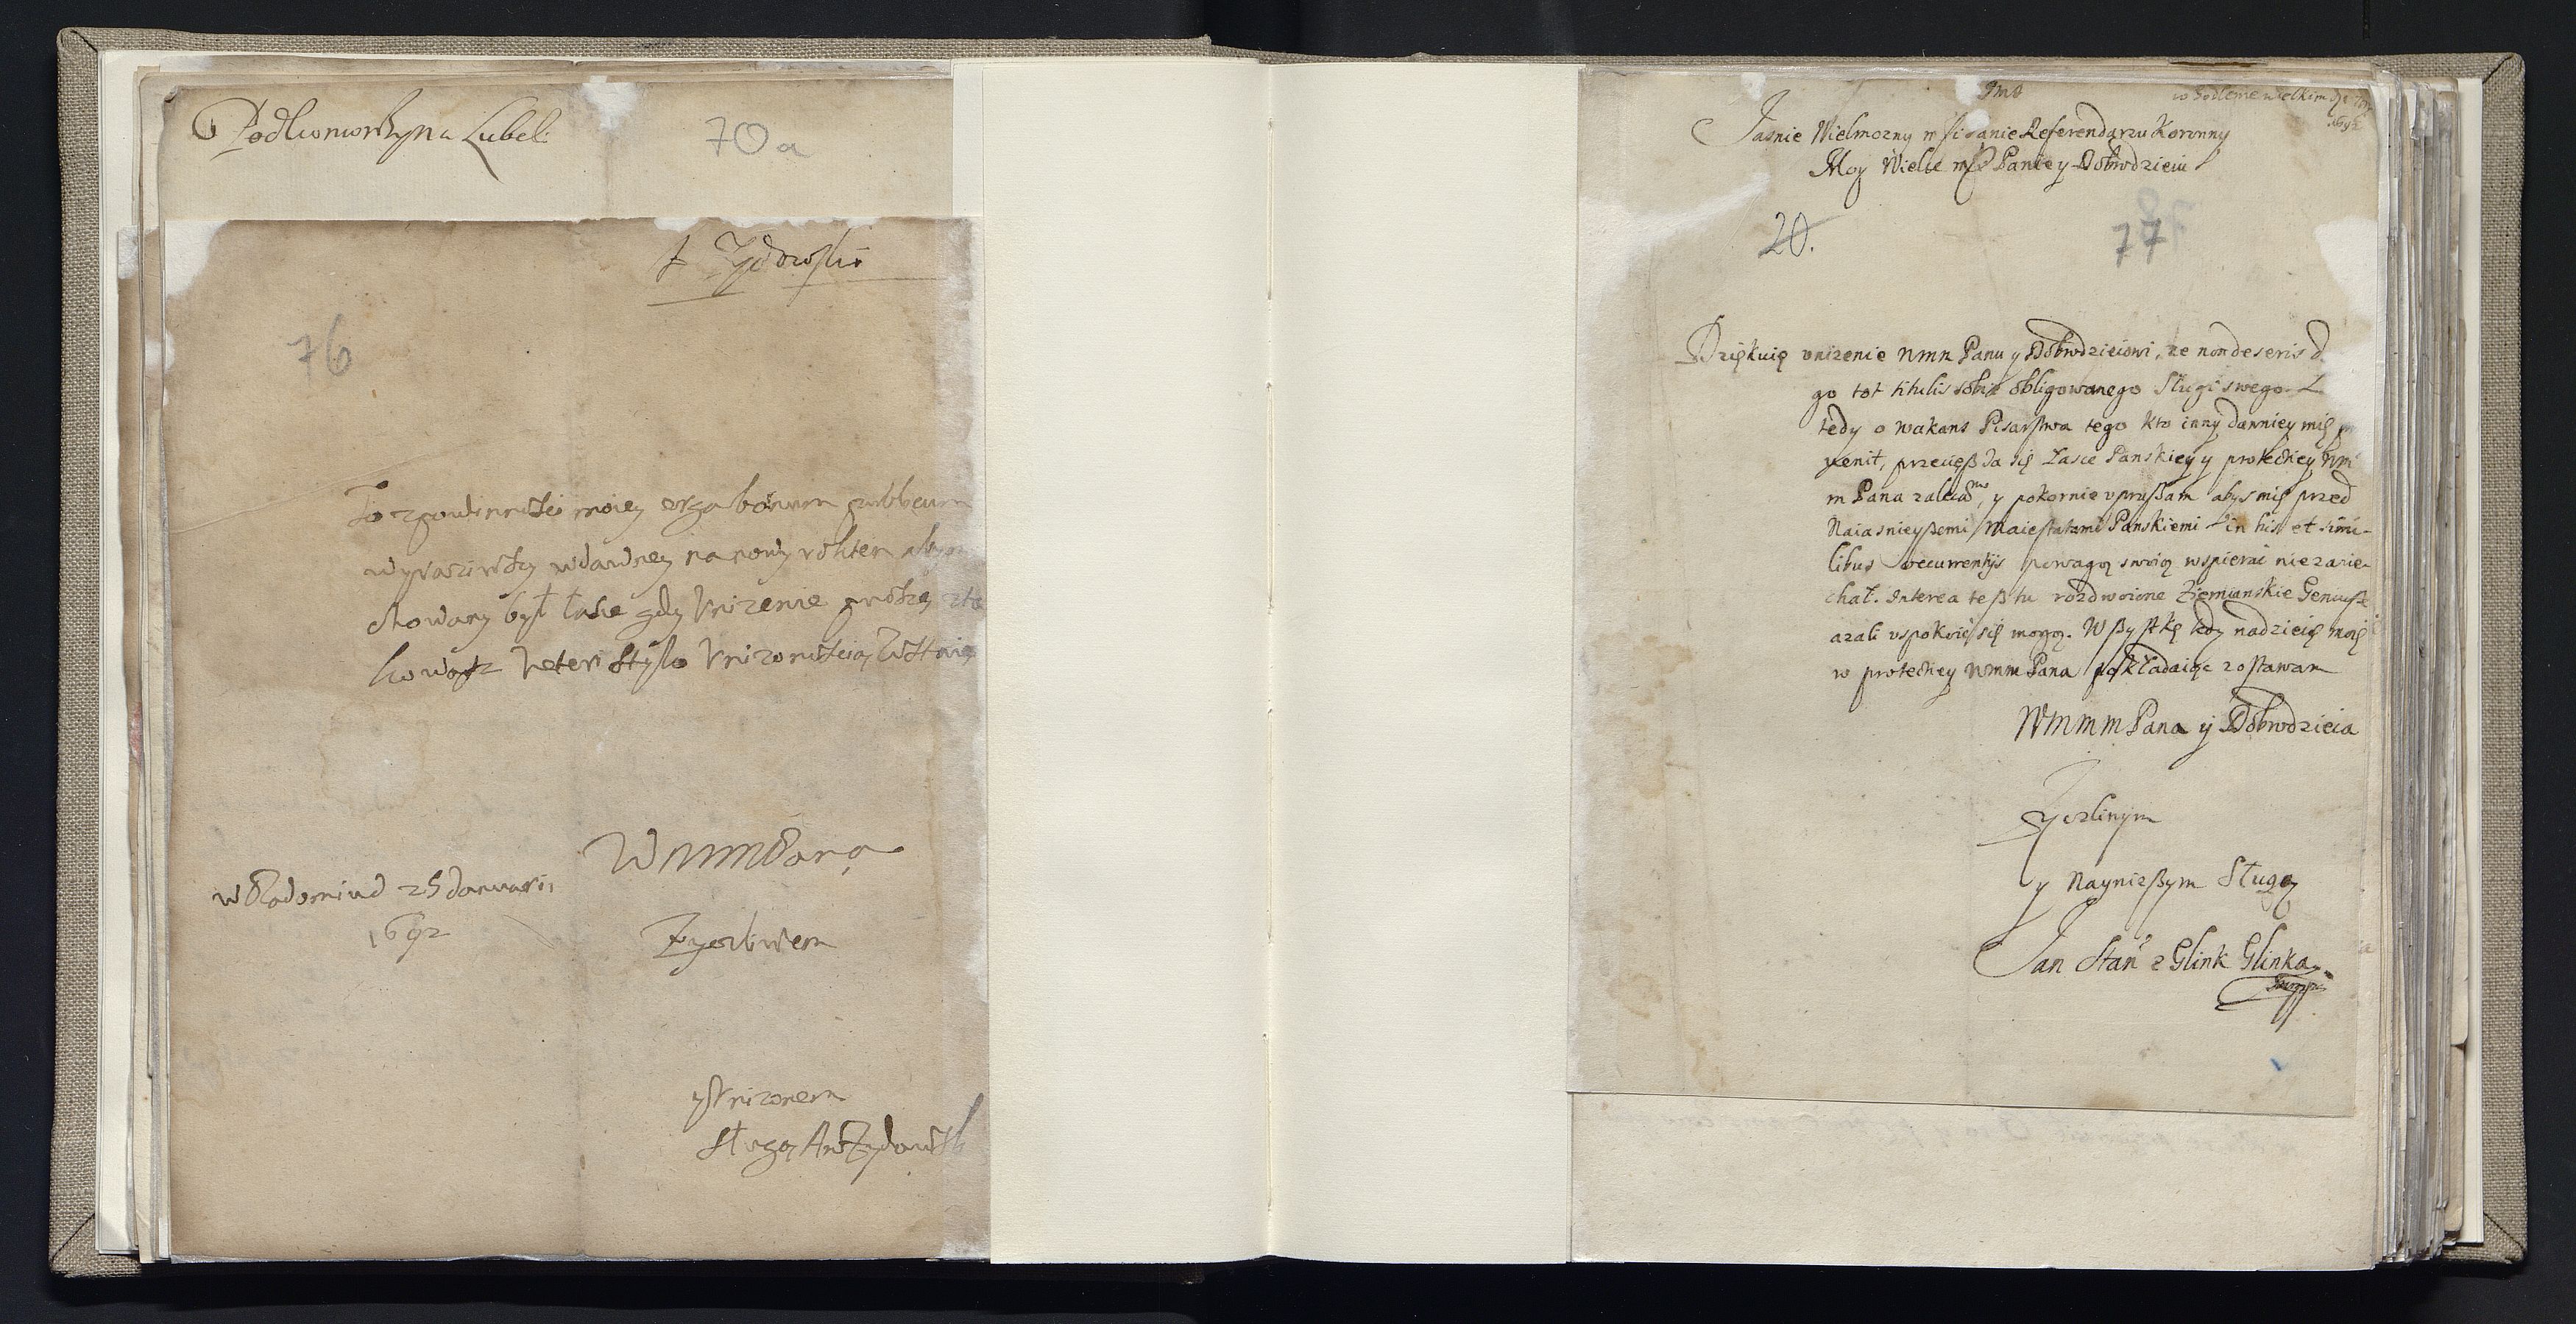 Podkomorzyna Lubel:
70a
Zydowski
76
To z powinnosci moiey erga bonum publicum
wyraziwszy w dawney na nowy
chowany był łasce gdy unizenie proszę
veteri stylo
w Radomiu d 25 Januarii
1692
WMMMPana
Zyczliwem
y Unizonem
Sługą Ant Zydowsk
Jasnie Wielmozny mści Panie Referendarzu Koronny
Moy Wielce mści Panie y Dobrodzieiu
20.
77
Dziękuię unizenie Wmm Panu y Dobrodzieiowi, ze non deseris
go tot titulis sobie obligowanego Sługi swego.
tedy o wakans Pisarstwa tego kto inny dawniey mię
venit, przecięß Ja się Łasce Panskiey y protekcyey Wm
m Pana zalecam, y pokornie upraßam abys mię przed
Naiasnieyßemi Maiestatami Panskiemi in his et simi-
libus occurrentijs powagą swoią wspierać nie zanie-
chał. Interea teß tu rozdwoione Ziemianskie
azali uspokoić się mogą. Wßystkę tedy nadzieię moię
w protekcyey Wmm Pana pokładaiąc zostawam
WMMMPana y Dobrodzieia
Zyczliwym
y Naynizßym Sługą
Jan Stan z Glink Glinka
mpp